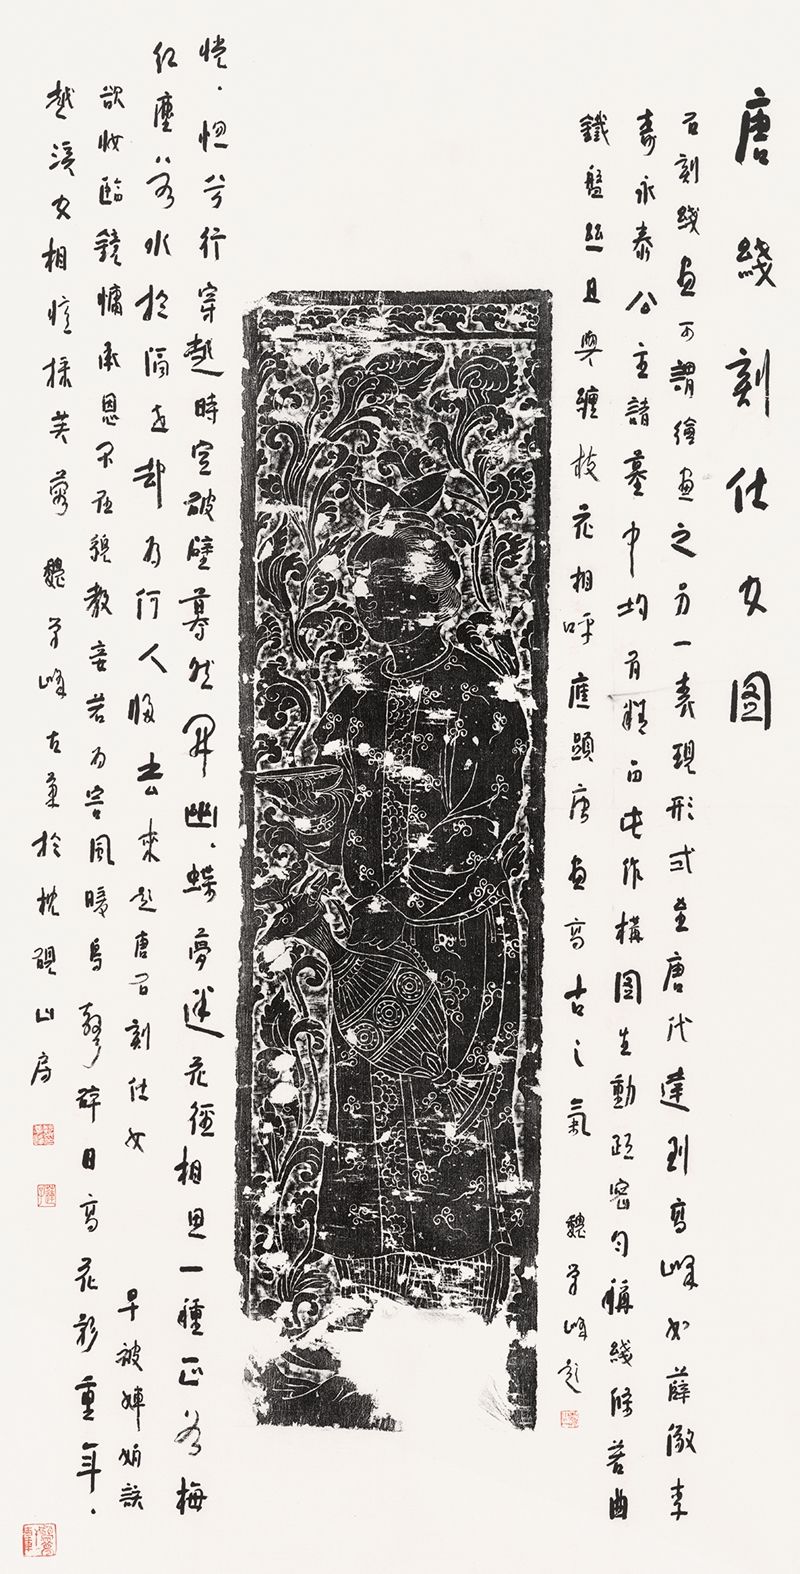 唐綫刻仕女图
石刻綫畫可謂繪畫之另一表現形式至唐代達到高峰如薛儆李
壽永泰公主諸墓中均有精品此作構图生動疏密勻稱綫條若曲
鐵盤絲且與纏枝花相呼應顕唐畫高古之氣 魏学峰題
恍、惚兮行穿越時空破壁驀然開幽、蝶夢迷花徑相思一種正若梅
红塵若水於隔世却为行人去來 題唐石刻仕女 早被婵娟誤
欲妝臨鏡慵承恩不在貌教妾若为容風暖鳥聲碎日高花影重年、
越溪女相憶採芙蓉 魏学峰於枕硯山房